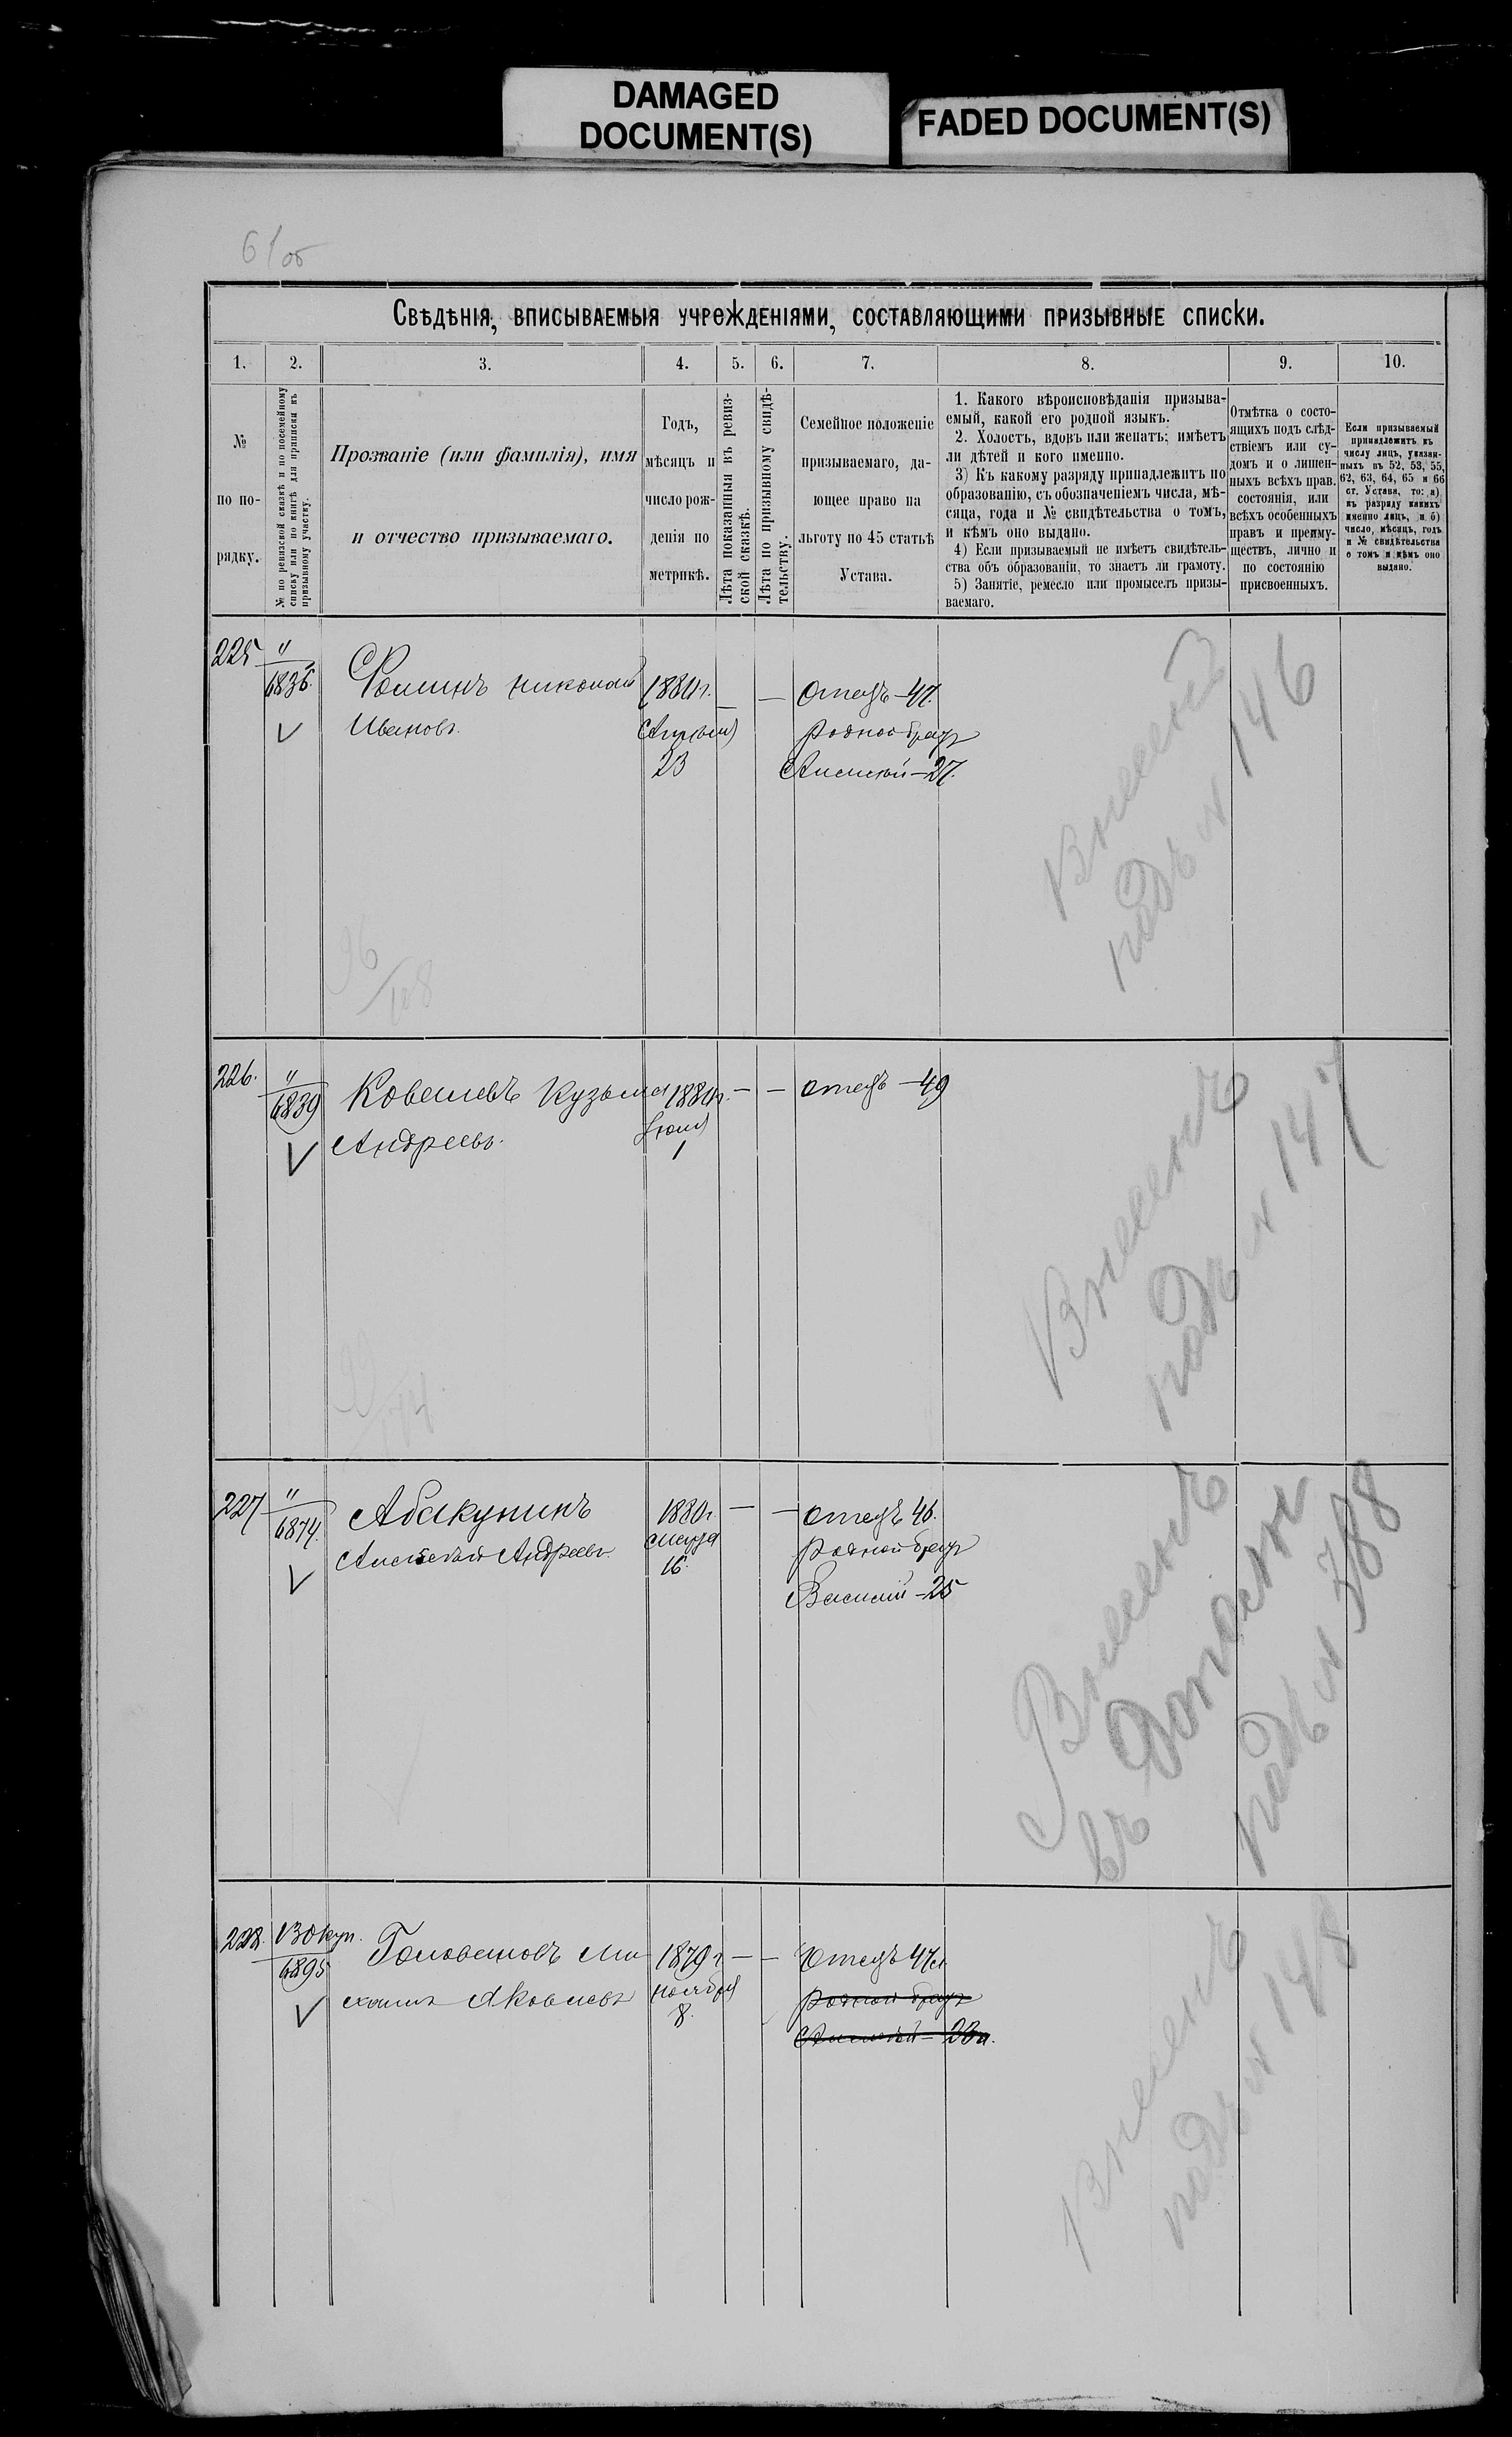 DAMAGED
DOCUMENT(S)
FADED DOCUMENT(S)
61об
Свѣдѣнія, вписываемыя учрежденіями, составляющими призывные списки.
1.
2.
3.
4.
5.
6.
7.
8.
9.
10.
№
по по-
рядку.
№ по ревизской сказкѣ и по посемейному
списку или по книгѣ для приписки къ
призывному участку.
Прозваніе (или фамилія), имя
и отчество призываемаго.
Годъ,
мѣсяцъ и
число рож-
денія по
метрикѣ.
Лѣта показанныя въ ревиз-
ской сказкѣ.
Лѣта по призывному свидѣ-
тельству.
Семейное положеніе
призываемаго, да-
ющее право на
льготу по 45 статьѣ
Устава.
1. Какого вѣроисповѣданія призыва-
емый, какой его родной языкъ.
2. Холостъ, вдовъ или женатъ; имѣетъ
ли дѣтей и кого именно.
3) Къ какому разряду принадлежитъ по
образованію, съ обозначеніемъ числа, мѣ-
сяца, года и № свидѣтельства о томъ,
и кѣмъ оно выдано.
4) Если призываемый не имѣетъ свидѣтель-
ства объ образованіи, то знаетъ ли грамоту.
5) Занятіе, ремесло или промыселъ призы-
ваемаго.
Отмѣтка о состо-
ящихъ подъ слѣд-
ствіемъ или су-
домъ и о лишен-
ныхъ всѣхъ прав.
состоянія, или
всѣхъ особенныхъ
правъ и преиму-
ществъ, лично и
по состоянію
присвоенныхъ.
Если призываемый
принадлежитъ къ
числу лицъ, указан-
ныхъ въ 52, 53, 55,
62, 63, 64, 65 и 66
ст. Устава, то: а)
къ разряду какихъ
именно лицъ, и б)
число, мѣсяцъ, годъ
и № свидѣтельства
о томъ и кѣмъ оно
выдано.
225 " Фоминъ Николай 1880г. — Отецъ — 47.
6836. Ивановъ. Апрѣля родной братъ
23 Алексѣй — 27.
Внесенъ
подъ № 146
96/108
226. " Ковалевъ Кузьма 1880г. — — отецъ — 49
6839 Андреевъ. Іюля
1
Внесенъ
подъ № 147
227 " Абакунинъ 1880г. — — отецъ 46.
6874. Алексѣй Андреевъ. Марта родной братъ
16. Василій — 25
Внесенъ
въ дополн
подъ № 388
228. Вокуп. Головановъ Ми- 1879г. — — Отецъ 47л
6895 хаилъ Яковлевъ ноября родной братъ
8. Алексѣй — 23л.
Внесенъ
подъ № 148